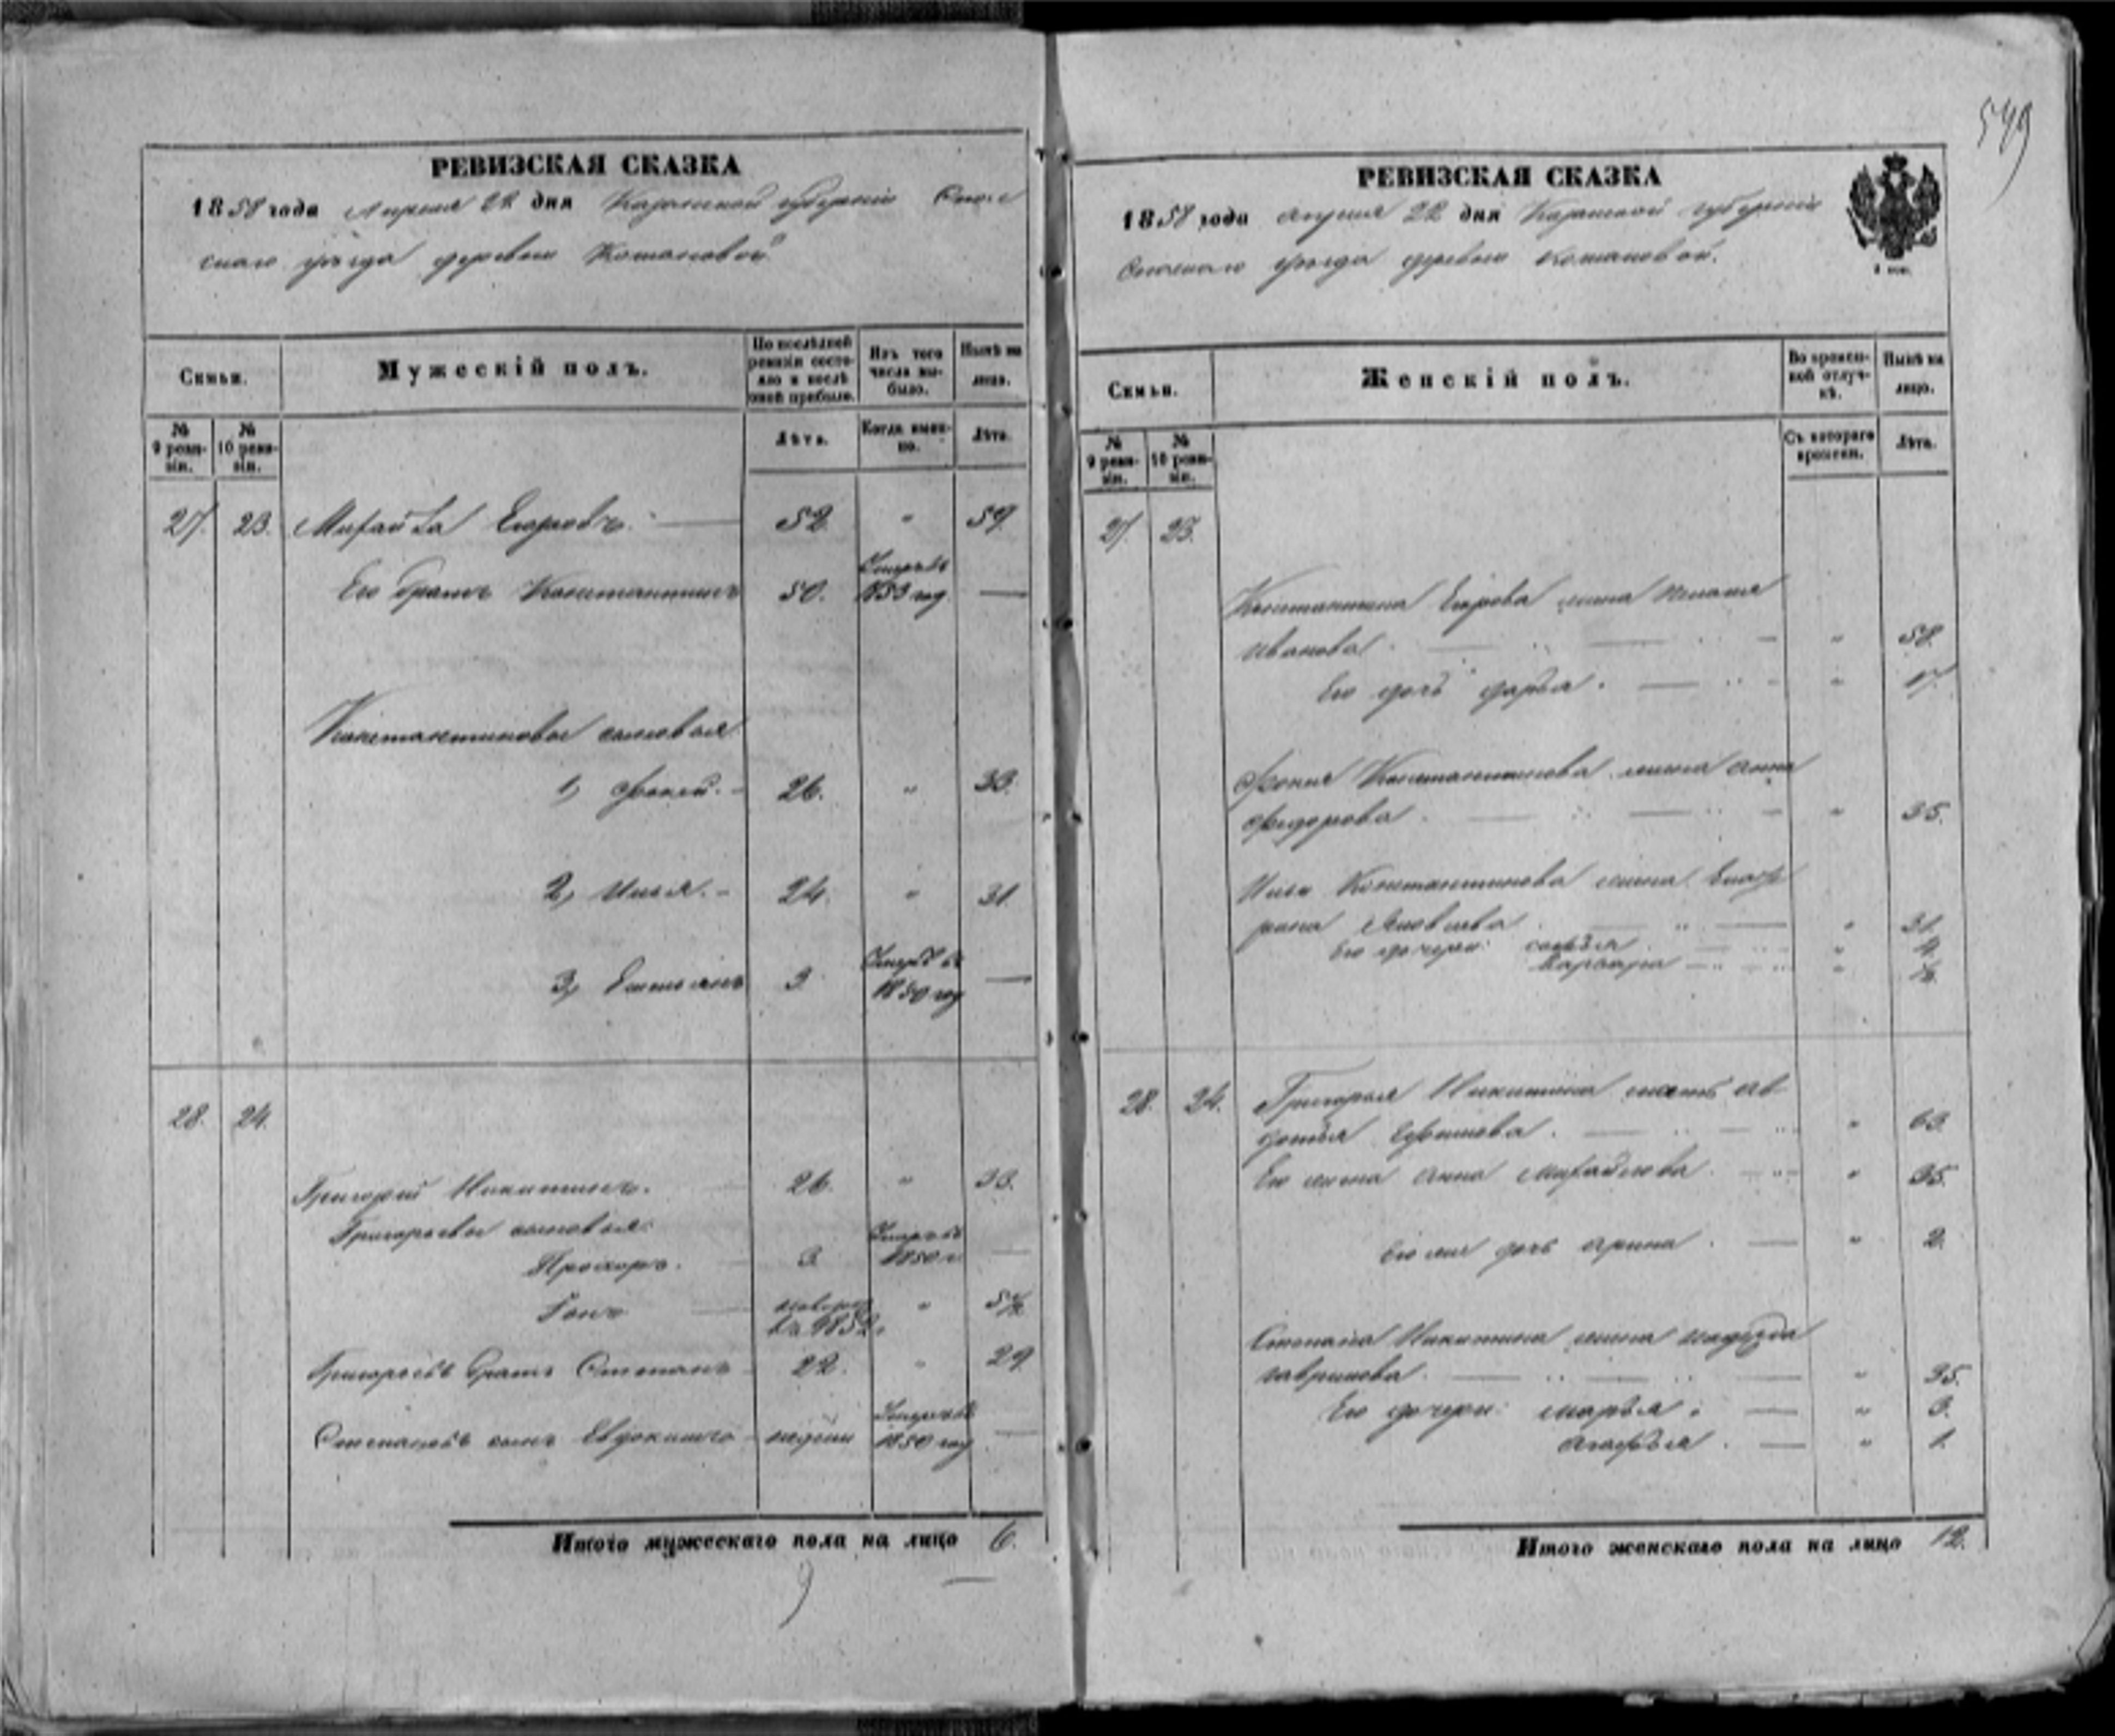 549
РЕВИЗСКАЯ СКАЗКА
1858 года Апреля 22 дня Казанской губернiи Спас
скаго уѣзда деревни
Семьи.
Мужескiй полъ.
По послѣдней ревизiи состояло и послѣ оной прибыло.
Изъ того числа выбыло.
Нынѣ на лицо.
№ 9 ревизiи.
№ 10 ревизiи.
Лѣта.
Когда именно.
Лѣта.
27. 23. Михайла Егоровъ. 52. " 59.
Его братъ Константинъ 50. 1853 год —
Константиновы сыновья
1, Фокей. 26. " 33.
2, Илья. 24. " 31.
3, 3 1850 год —
28. 24.
Григорiй Никитинъ. 26. " 33.
Григорьевы сыновья:
Прохоръ. 3. 1850 г. —
1852.
Григорьевъ братъ Степанъ 22. " 29.
Степановъ сынъ Евдокимъ недели 1850 год —
Итого мужескаго пола на лицо 6.
РЕВИЗСКАЯ СКАЗКА
1858 года Апреля 22 дня Казанской губернiи
Спаскаго уѣзда деревни
Семьи.
Женскiй полъ.
Во временной отлучкѣ.
Нынѣ на лицо.
№ 9 ревизiи.
№ 10 ревизiи.
Съ котораго времени.
Лѣта.
27. 23.
Константина Егорова жена
Иванова " 58.
Его дочь Дарья. " 17.
Фокия Константинова жена Анна
Федорова " 35.
Ильи Константинова жена
Яковлева " 31.
Его дочери: "
Варвара "
28. 24. Григорья Никитина мать Ав
дотья Ефимова. " 63.
Его жена Анна Михайлова. " 35.
дочь Арина. " 2.
Степана Никитина жена Надежда
Гаврилова. " 35.
Его дочери: Марья " 3.
Агафья. " 1.
Итого женскаго пола на лицо 12.